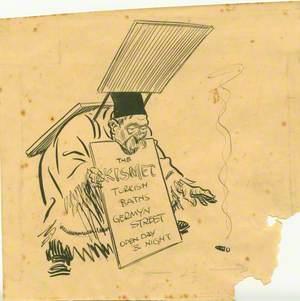 THE
KISMET
TURKISH
BATHS
GERMYN
STREET
OPEN DAY
& NIGHT